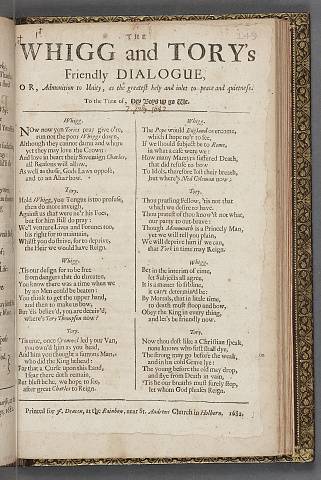 THE
WHIGG and TORY's
Friendly DIALOGUE,
OR, Admonition to Unity, as the greatest help and inlet to peace and quietness.
To the Tune of, Hey Boys up go We.
Whigg.
NOw now you Tories pray give o're,
run not the poor Whiggs down,
Although they cannot damn and
yet they may love the Crown:
And love in heart their Soveraign Charles,
all Realms will allow,
As well as those, Gods Laws oppose,
and to an Altar bow.
Tory.
Hold Whigg, your Tongue is too profuse,
then do more inveigh,
Against us that were ne'r his Foes,
but for him still do pray:
We'l venture Lives and Fortunes too,
his right for to maintain,
Whilst you do strive, for to deprive,
the Heir we would have Reign.
Whigg.
'Tis our design for to be free
from dangers that do threaten,
You know there was a time when we
by no Men could be beaten:
You think to get the upper hand,
and then to make us bow,
But 'tis believ'd, you are deceiv'd,
where's Tory Thompson now?
Tory.
'Tis true, once Cromwel led you Van,
you own'd him as your head,
And him you thought a famous Man,
who did the King behead:
For that a Curse upon this Land,
I fear there doth remain,
But blest be he, we hope to see,
after great Charles to Reign.
Whigg.
The Pope would England overcome,
which I hope no'r to see,
If we should subject be to Rome,
in what a case were we:
How many Martyrs suffered Death,
that did refuse to bow
To Idols, therefore hold their breath,
but where's Ned Coleman now?
Tory.
Thou pratling Fellow, 'tis not that
which we desire to have,
Thou pratest of thou know'st not what,
our party to out-brave:
Though Monmouth is a Princely Man,
yet we will tell you plain,
We will deprive him if we can,
that York in time may Reign.
Whigg.
But in the interim of time,
let Subjects all agree,
It is a matter so sublime,
it can't determin'd be:
By Mortals, that in little time,
to death must stoop and bow,
Obey the King in every thing,
and let's be friendly now.
Tory.
Now thou dost like a Christian speak,
none knows who first shall dye,
The strong may go before the weak,
and in his cold Grave lye:
The young before the old may drop,
and flye from Death in vain,
'Tis he our breaths must surely stop,
let whom God pleases Reign.
Printed for J. Deacon, at the Rainbow, near St. Andrews Church in Holborn, 1682.